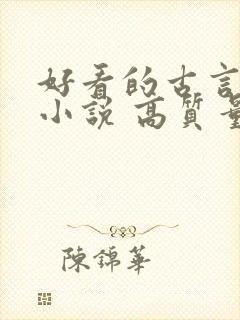 好看的古言
小說 高質量
陳錦華